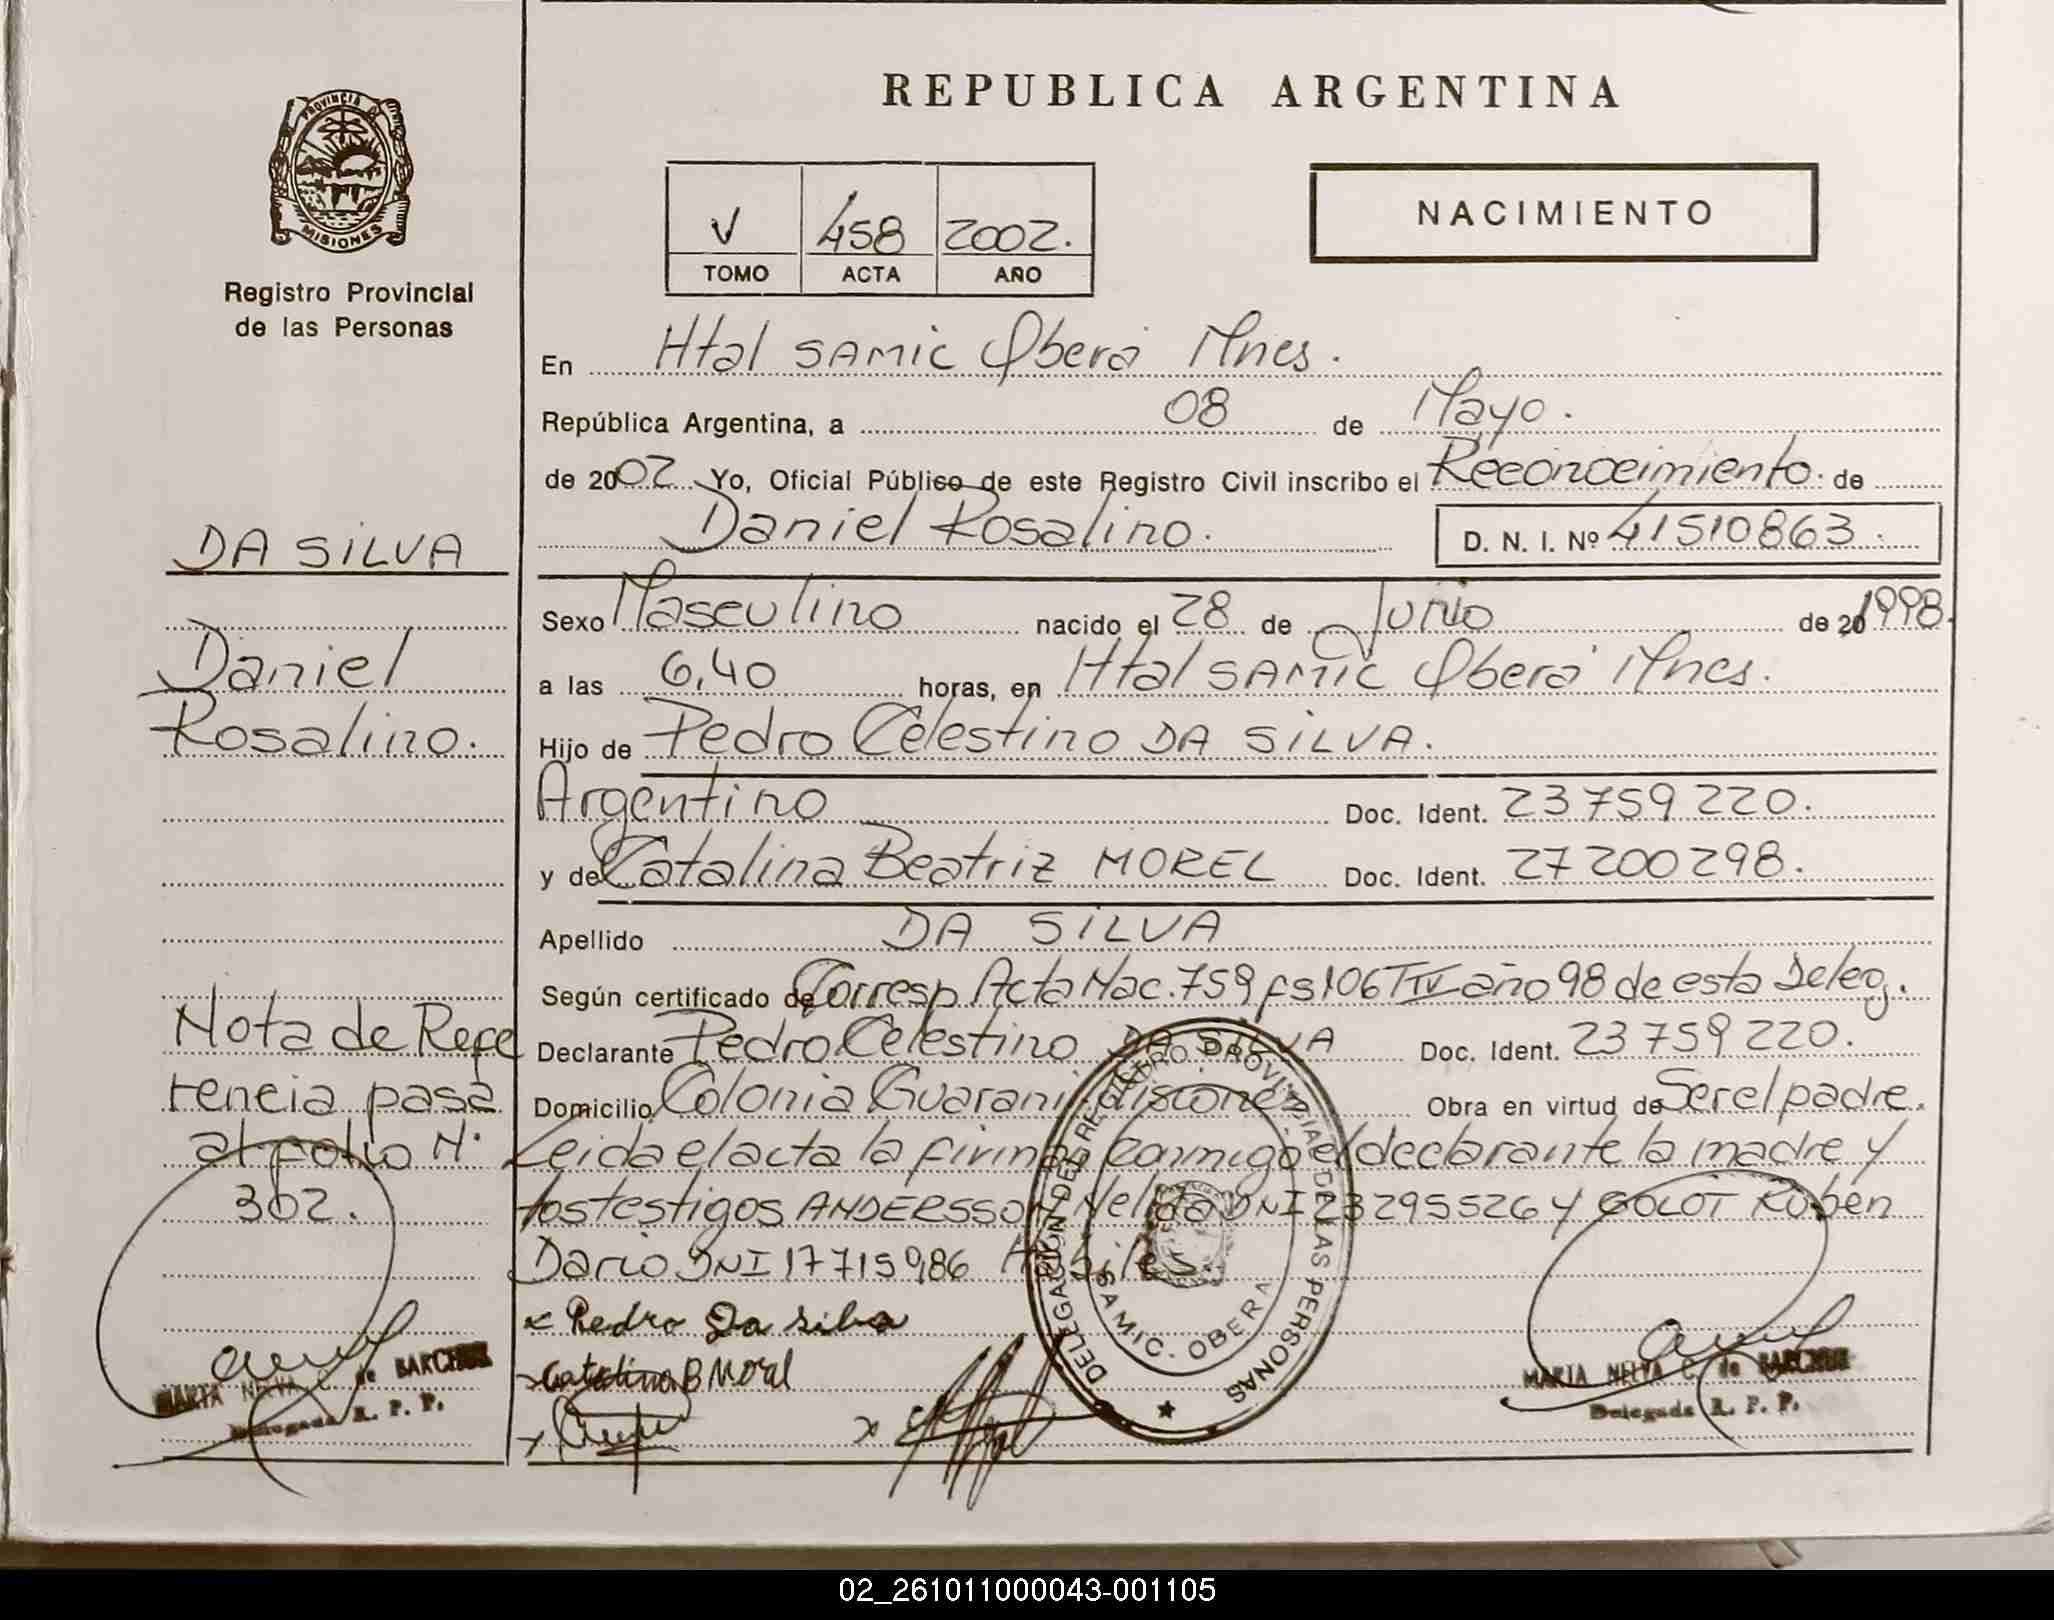 REPUBLICA ARGENTINA
PROVINCIA DE
MISIONES
Registro Provincial
de las Personas
V 458 2002.
TOMO ACTA AÑO
NACIMIENTO
En Htal SAMIC Oberá Mnes.
República Argentina, a 08 de Mayo.
de 2002 Yo, Oficial Público de este Registro Civil inscribo el Reconocimiento de
Daniel Rosalino. D. N. I. Nº 41510863.
DA SILVA
Daniel
Rosalino.
Sexo Masculino nacido el 28 de Junio de 20 1998.
a las 6,40 horas, en Htal SAMIC Oberá Mnes.
Hijo de Pedro Celestino DA SILVA.
Argentino Doc. Ident. 23759220.
y de Catalina Beatriz MOREL Doc. Ident. 27200298.
Apellido DA SILVA
Según certificado de Corresp Acta Nac. 759 fs 106 T IV año 98 de esta Deleg.
Declarante Pedro Celestino DA SILVA Doc. Ident. 23759220.
Domicilio Colonia Guarani Misiones Obra en virtud de Ser el padre.
Leida el acta la firman conmigo el declarante la madre y
los testigos ANDERSSON Nelida DNI 23295526 y GOLOT Ruben
Dario DNI 17715986 Habiles.
Nota de Refe
rencia pasa
al folio N·
302.
x Pedro Da Silba
Catalina B Morel
DELEGACION DEL REGISTRO PROVINCIAL DE LAS PERSONAS
SAMIC. OBERA
MARIA NELVA C. de
Delegada R. P. P.
MARIA NELVA C. de
Delegada R. P. P.
02_261011000043-001105